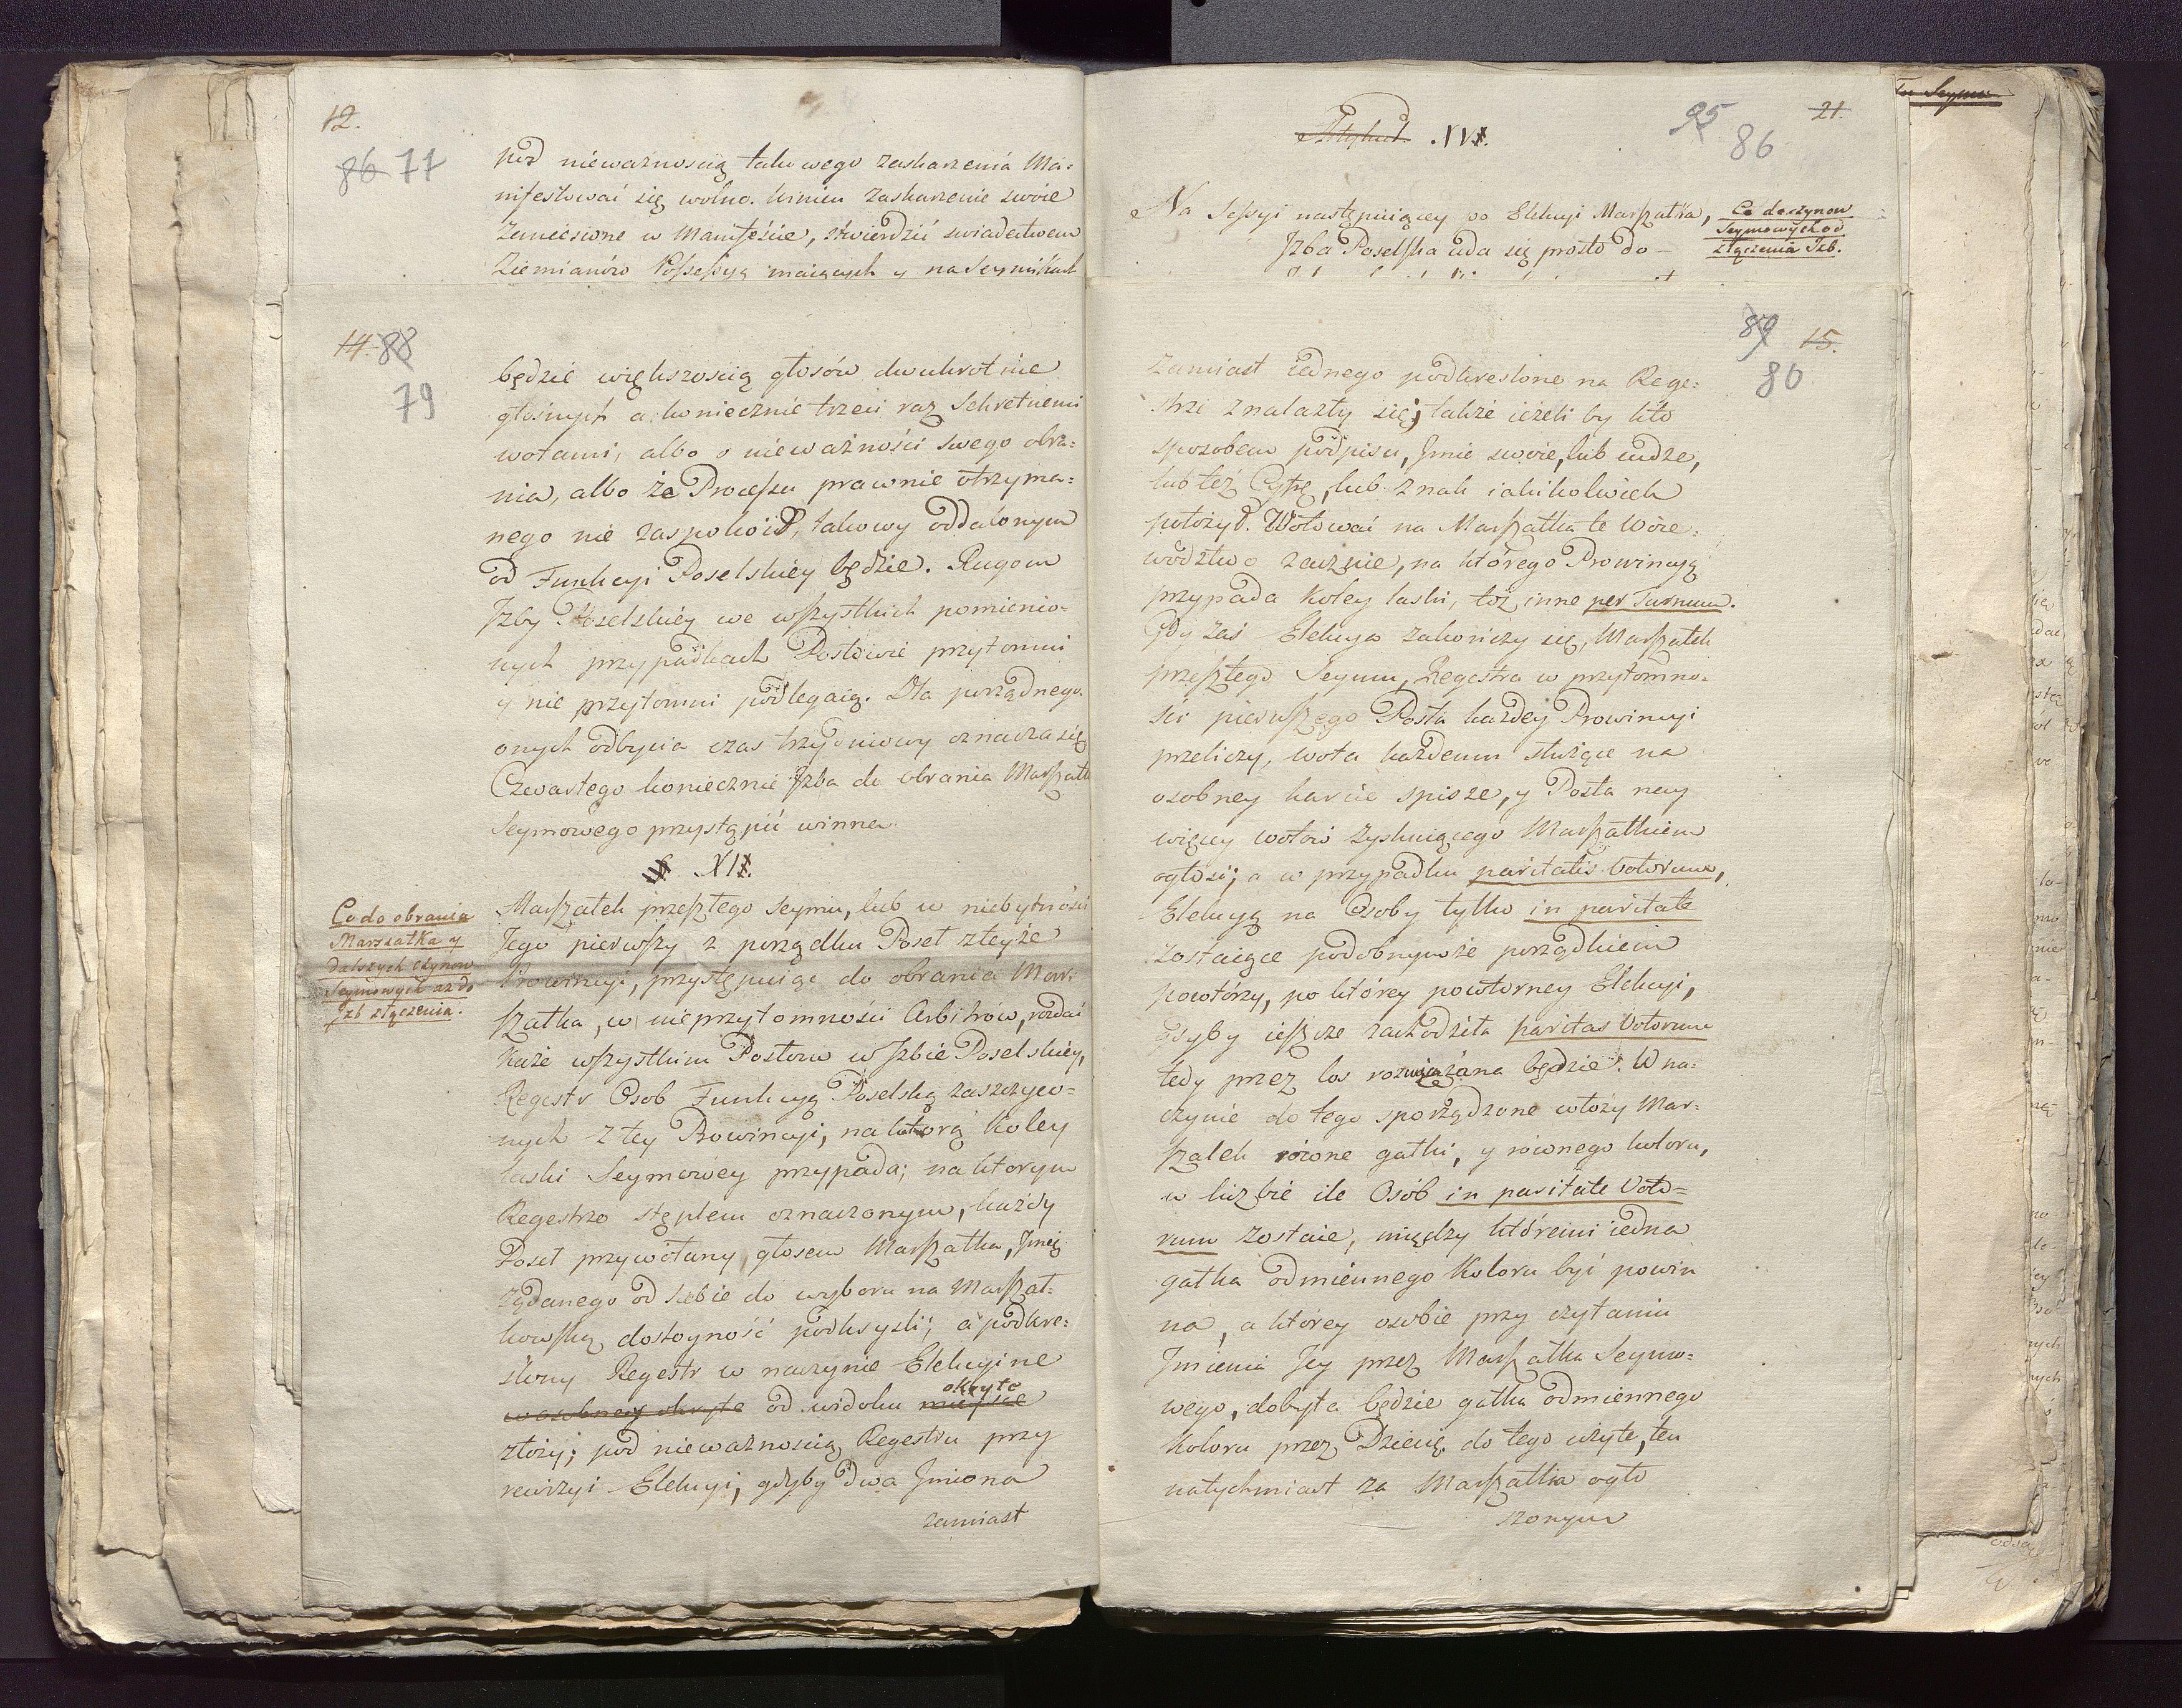 12.
86 77
pod nieważnoscią takowego zaskarzenia Ma=
nifestować się wolno. winien zaskarzenie swoie
zaniesione w Manifeście, stwierdzić swiadectwem
Ziemianów Possessyą maiących y na Seymikach
14. 88
79
będzie większoscią głosów dwukrotnie
głośnych a koniecznie trzeci raz Sekretnemi
wotami, albo o nieważności swego obra=
nia, albo że Processu prawnie otrzyma=
nego nie zaspokoił, takowy oddalonym
od Funkcyi Poselskiéy będzie. Rugom
Jzby Poselskiéy we wszystkich pomienio=
nych przypadkach Posłowie przytomni
y nie przytomni podlegaią. Dla porządnego
onych odbycia czas trzydniowy oznacza się
Czwartego koniecznie Jzba do obrania Marszałk
Seymowego przystąpić winna
XII.
Co do obrania
Marszałka y
dalszych czynow
Seymowych aż do
Jzb złączenia.
Marszałek przeszłego Seymu, lub w niebytności
Jego pierwszy z porządku Poseł z teyże
Prowincyi, przystępuiąc do obrania Mar=
szałka, w nieprzytomności Arbitrów, rozdać
każe wszystkim Posłom w Jzbie Poselskiéy,
Regestr Osob Funkcyą Poselską zaszczyco=
nych z tey Prowincyi, na którą koley
laski Seymowéy przypada; na ktorym
Regestrze stęplem oznaczonym, każdy
Poseł przywołany głosem Marszałka, Jmię
żądanego od siebie do wyboru na Marszał=
kowską dostoyność podkryśli; a podkre=
slony Regestr w naczynie Elekcyine
w osobney okryte od widoku mieysce okryte
złoży; pod nieważnoscią Regestru przy
rewizyi Elekcyi, gdyby dwa Jmiona
zamiast
Artykuł XVI.
95 21.
86
Na Sessyi następuiącey po Elekcyi Marszałka,
Jzba Poselska uda się prosto do
Co do czynow
Seymowych od
złączenia Jzb.
89 15.
80
zamiast iednego podkreslone na Rege=
strze znalazły się; także ieżeli by kto
sposobem podpisu, Jmie swoie, lub cudze,
lub też Cyfrę, lub znak iakikolwiek
położył. Wotować na Marszałka te Woie=
wodztwo zacznie, na którego Prowincyą
przypada koley laski, toż inne per Turnum.
Gdy zaś Elekcya zakończy się, Marszałek
przeszłego Seymu, Regestra w przytomno=
ści pierwszego Posła każdéy Prowincyi
przeliczy, wota każdemu służące na
osobney karcie spisze, y Posła nay
więcey wotów zyskuiącego Marszałkiem
ogłosi; a w przypadku paritatis Votorum,
Elekcyą na Osoby tylko in paritate
zostaiące podobnymże porządkiem
powtórzy, po którey powtorney Elekcyi,
gdyby ieszcze zachodziła paritas Votorum
tedy przez los rozwiązana będzie. W na=
czynie do tego sporządzone włoży Mar=
szałek równe gałki, y równego koloru,
w liczbie ile Osób in paritate Voto=
rum zostaie, między któremi iedna
gałka odmiennego koloru być powin
na, a którey osobie przy czytaniu
Jmienia Jey przez Marszałka Seymo=
wego, dobyta będzie gałka odmiennego
koloru przez Dziecię do tego użyte, ten
natychmiast za Marszałka ogło
szonym